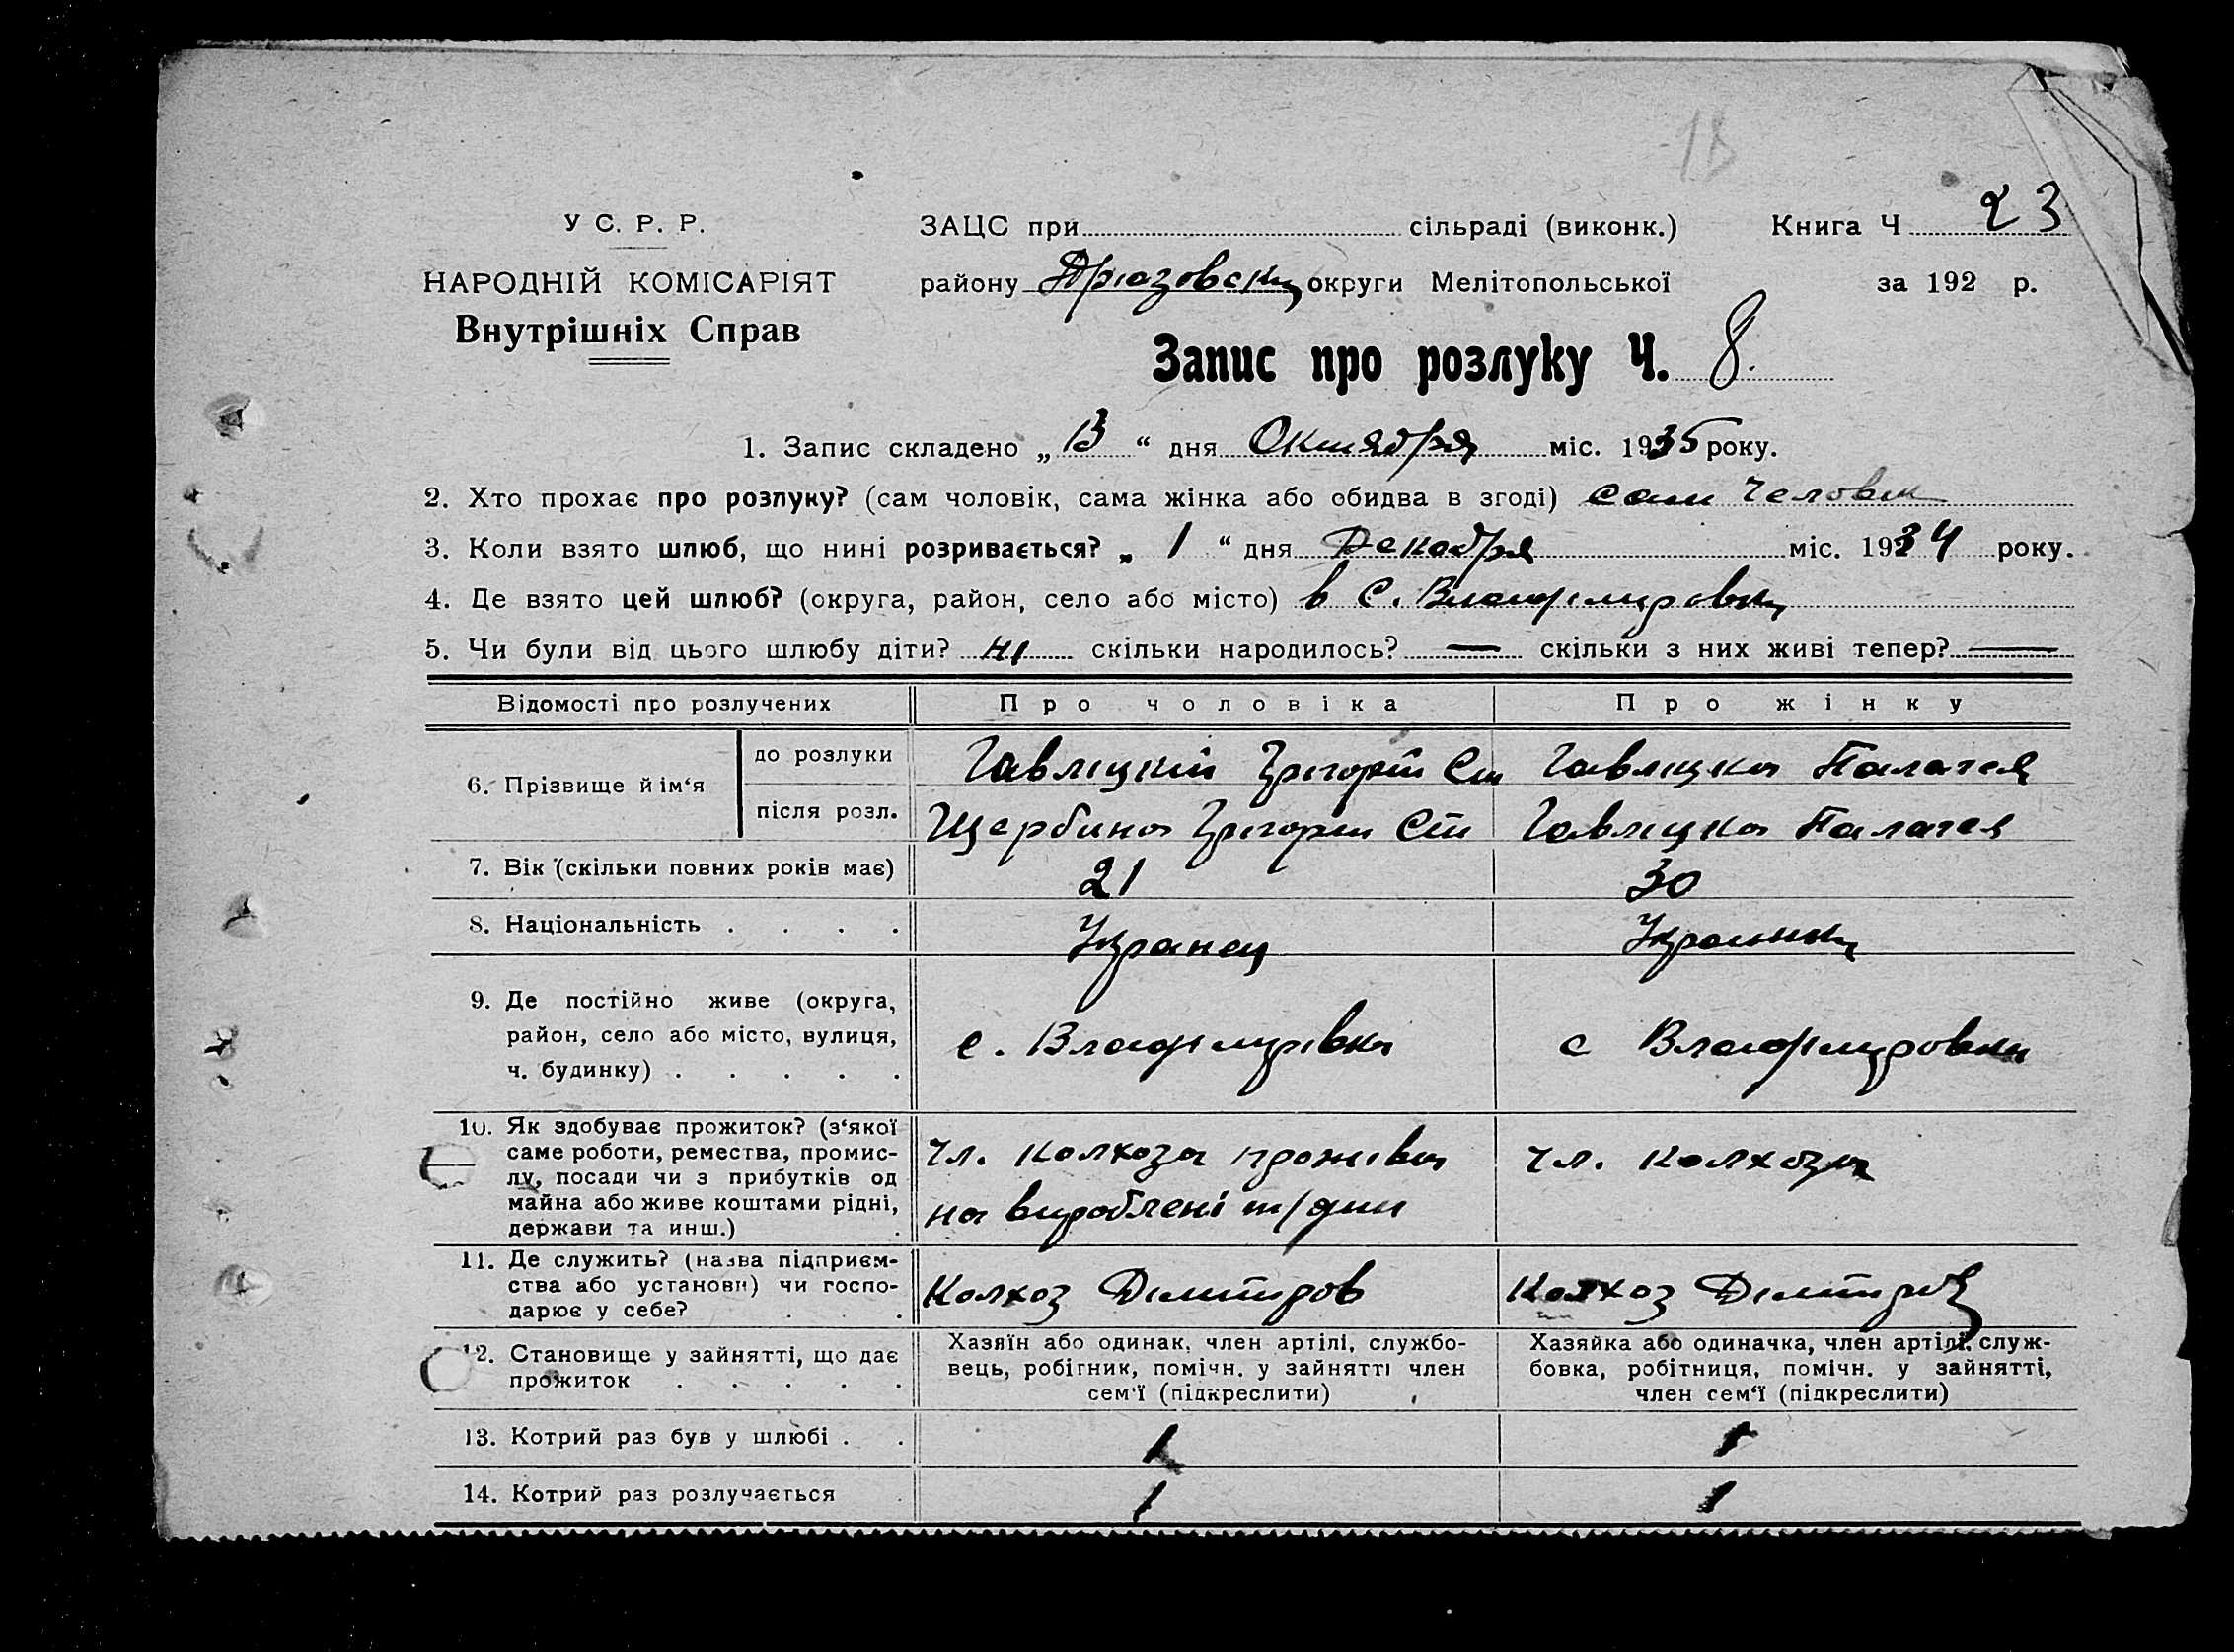 У С. Р. Р.
НАРОДНІЙ КОМІСАРІЯТ
Внутрішніх Справ
ЗАЦС при сільраді (виконк.) Книга Ч 23
району округи Мелітопольської за 192 р.
Запис про розлуку Ч. 8.
1. Запис складено „ 13 “ дня Октября міс. 1935 року.
2. Хто прохає про розлуку? (сам чоловік, сама жінка або обидва в згоді) сам Человек
3. Коли взято шлюб, що нині розривається? „ 1 “ дня Декабря міс. 1934 року.
4. Де взято цей шлюб? (округа, район, село або місто) в с. Владимировку
5. Чи були від цього шлюбу діти? ні скільки народилось? — скільки з них живі тепер? —
Відомості про розлучених Про чоловіка Про жінку
6. Прізвище й ім‘я
до розлуки Гавліцкій Григорій Ст Гавліцка Палагея
після розл. Щербина Григорій Ст Гавліцка Палагея
7. Вік (скільки повних років має) 21 30
8. Національність . . . . Укранец Украинка
9. Де постійно живе (округа,
район, село або місто, вулиця,
ч. будинку) . . . . .
с. Владимирівка с Владимировка
10. Як здобуває прожиток? (з‘якої
саме роботи, ремества, промис-
лу, посади чи з прибутків од
майна або живе коштами рідні,
держави та инш.)
Чл. колхоза прожива
на вироблені т/дни
чл. колхоза
11. Де служить? (назва підприєм-
ства або установи) чи госпо-
дарює у себе? . .
Колхоз Димитров Колхоз Димитров
12. Становище у зайнятті, що дає
прожиток . . . . .
Хазяїн або одинак, член артілі, службо-
вець, робітник, помічн. у зайнятті член
сем‘ї (підкреслити)
Хазяйка або одиначка, член артілі, служ-
бовка, робітниця, помічн. у зайнятті,
член сем‘ї (підкреслити)
13. Котрий раз був у шлюбі . . 1 1
14. Котрий раз розлучається 1 1